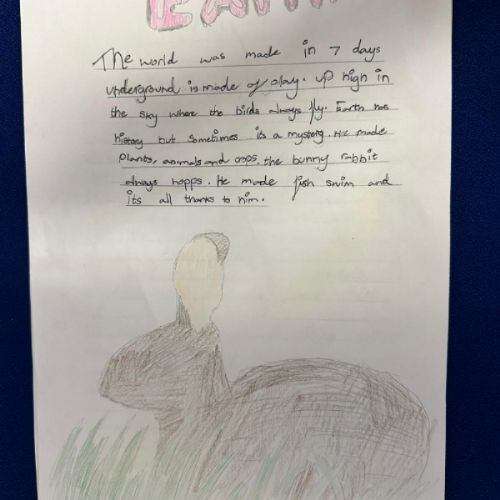 EARTH
The world was made in 7 days
underground is made of clay. up high in
the sky where the birds always fly. Earth has
history but sometimes its a mystery. He made
plants, animals and crops, the bunny rabbit
always hopps. He made fish swim and
its all thanks to him.